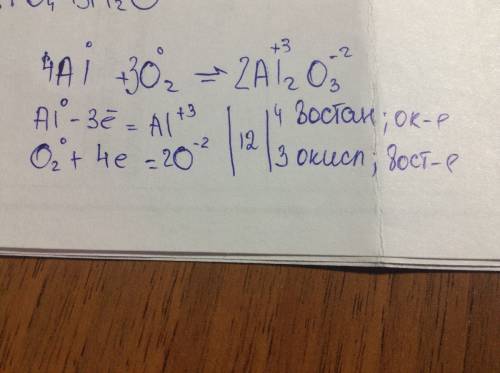 PO4 3H2O
4Al⁰ + 3O2⁰ = 2Al2⁺³O3⁻²
Al⁰ - 3ē = Al⁺³ | 12 | 4 Востан; ок-е
O2⁰ + 4e = 2O⁻² | 3 окисл; вост-е